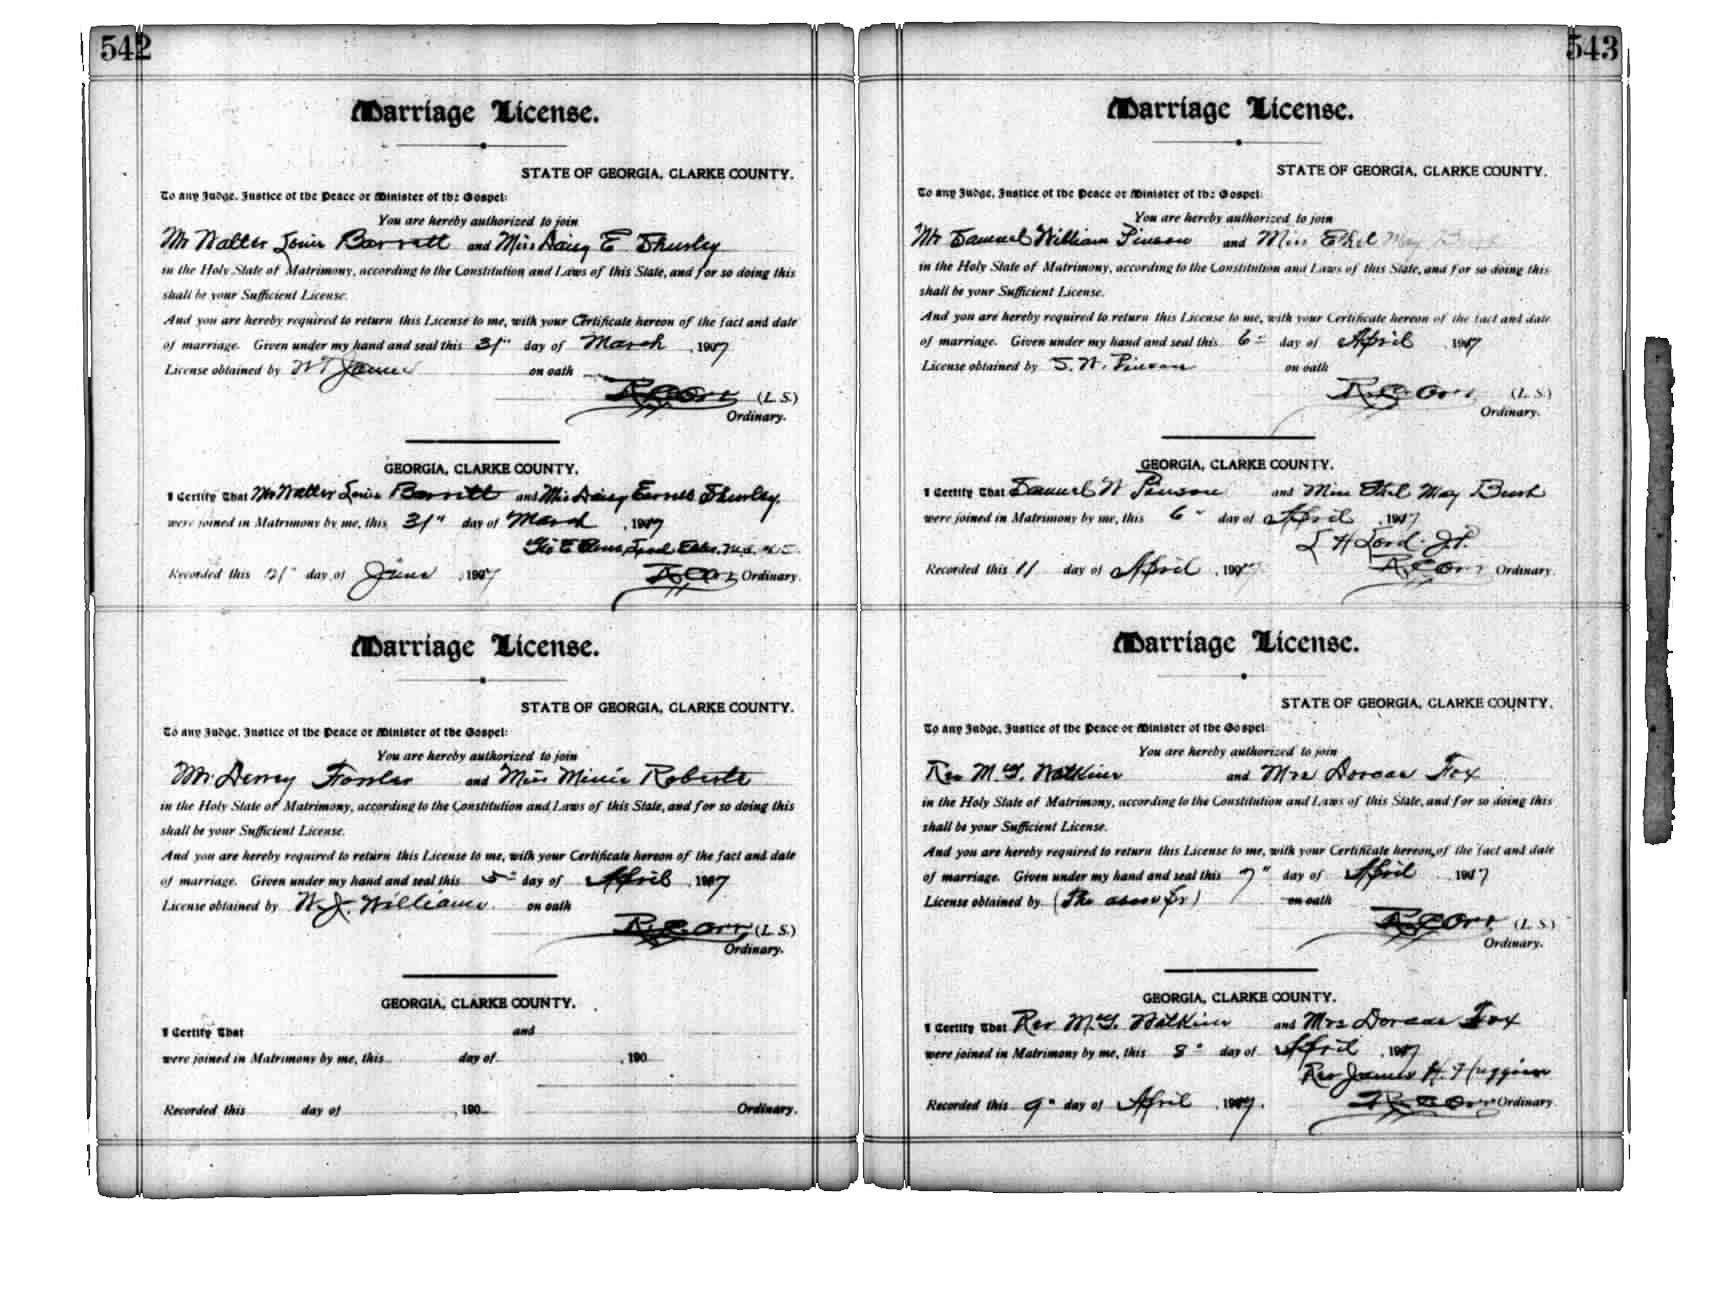 542
Marriage License.
STATE OF GEORGIA, CLARKE COUNTY.
To any Judge, Justice of the Peace or Minister of the Gospel:
You are hereby authorized to join
Mr Walter Louis Barrett and Miss Daisy E Thurley
in the Holy State of Matrimony, according to the Constitution and Laws of this State, and for so doing this
shall be your Sufficient License.
And you are hereby required to return this License to me, with your Certificate hereon of the fact and date
of marriage. Given under my hand and seal this 31" day of March, 1907
License obtained by on oath
R C Orr (L. S.)
Ordinary.
GEORGIA, CLARKE COUNTY.
I Certify That Mr Walter Louis Barrett and Miss Daisy Thurley.
were joined in Matrimony by me, this 31" day of March, 1907
Recorded this 21" day of June, 1907 R C Orr Ordinary.
Marriage License.
STATE OF GEORGIA, CLARKE COUNTY.
To any Judge, Justice of the Peace or Minister of the Gospel:
You are hereby authorized to join
Mr. Dewey Fowler and Miss Minie Roberts
in the Holy State of Matrimony, according to the Constitution and Laws of this State, and for so doing this
shall be your Sufficient License.
And you are hereby required to return this License to me, with your Certificate hereon of the fact and date
of marriage. Given under my hand and seal this 5" day of April, 1907
License obtained by W. J. Williams. on oath
R. C Orr (L. S.)
Ordinary.
GEORGIA, CLARKE COUNTY.
I Certify That and
were joined in Matrimony by me, this day of , 190
Recorded this day of , 190 Ordinary.
543
Marriage License.
STATE OF GEORGIA, CLARKE COUNTY.
To any Judge, Justice of the Peace or Minister of the Gospel:
You are hereby authorized to join
Mr Samuel William Pinson and Miss Ethel May Bush
in the Holy State of Matrimony, according to the Constitution and Laws of this State, and for so doing this
shall be your Sufficient License.
And you are hereby required to return this License to me, with your Certificate hereon of the fact and date
of marriage. Given under my hand and seal this 6" day of April, 1907
License obtained by S. W. Pinson on oath
R. C Orr (L. S.)
Ordinary.
GEORGIA, CLARKE COUNTY.
I Certify That Samuel W Pinson and Miss Ethel May Bush
were joined in Matrimony by me, this 6" day of April, 1907
L H Lord J.P.
Recorded this 11 day of April, 1907 R. C Orr Ordinary.
Marriage License.
STATE OF GEORGIA, CLARKE COUNTY.
To any Judge, Justice of the Peace or Minister of the Gospel:
You are hereby authorized to join
Rev M. G. Watkins and Mrs Dorcas Fox
in the Holy State of Matrimony, according to the Constitution and Laws of this State, and for so doing this
shall be your Sufficient License.
And you are hereby required to return this License to me, with your Certificate hereon, of the fact and date
of marriage. Given under my hand and seal this 7" day of April, 1907
License obtained by on oath
R C Orr (L. S.)
Ordinary.
GEORGIA, CLARKE COUNTY.
I Certify That Rev M. G. Watkins and Mrs Dorcas Fox
were joined in Matrimony by me, this 8" day of April, 1907
Rev James H. Huggins
Recorded this 9" day of April, 1907. R. C Orr Ordinary.